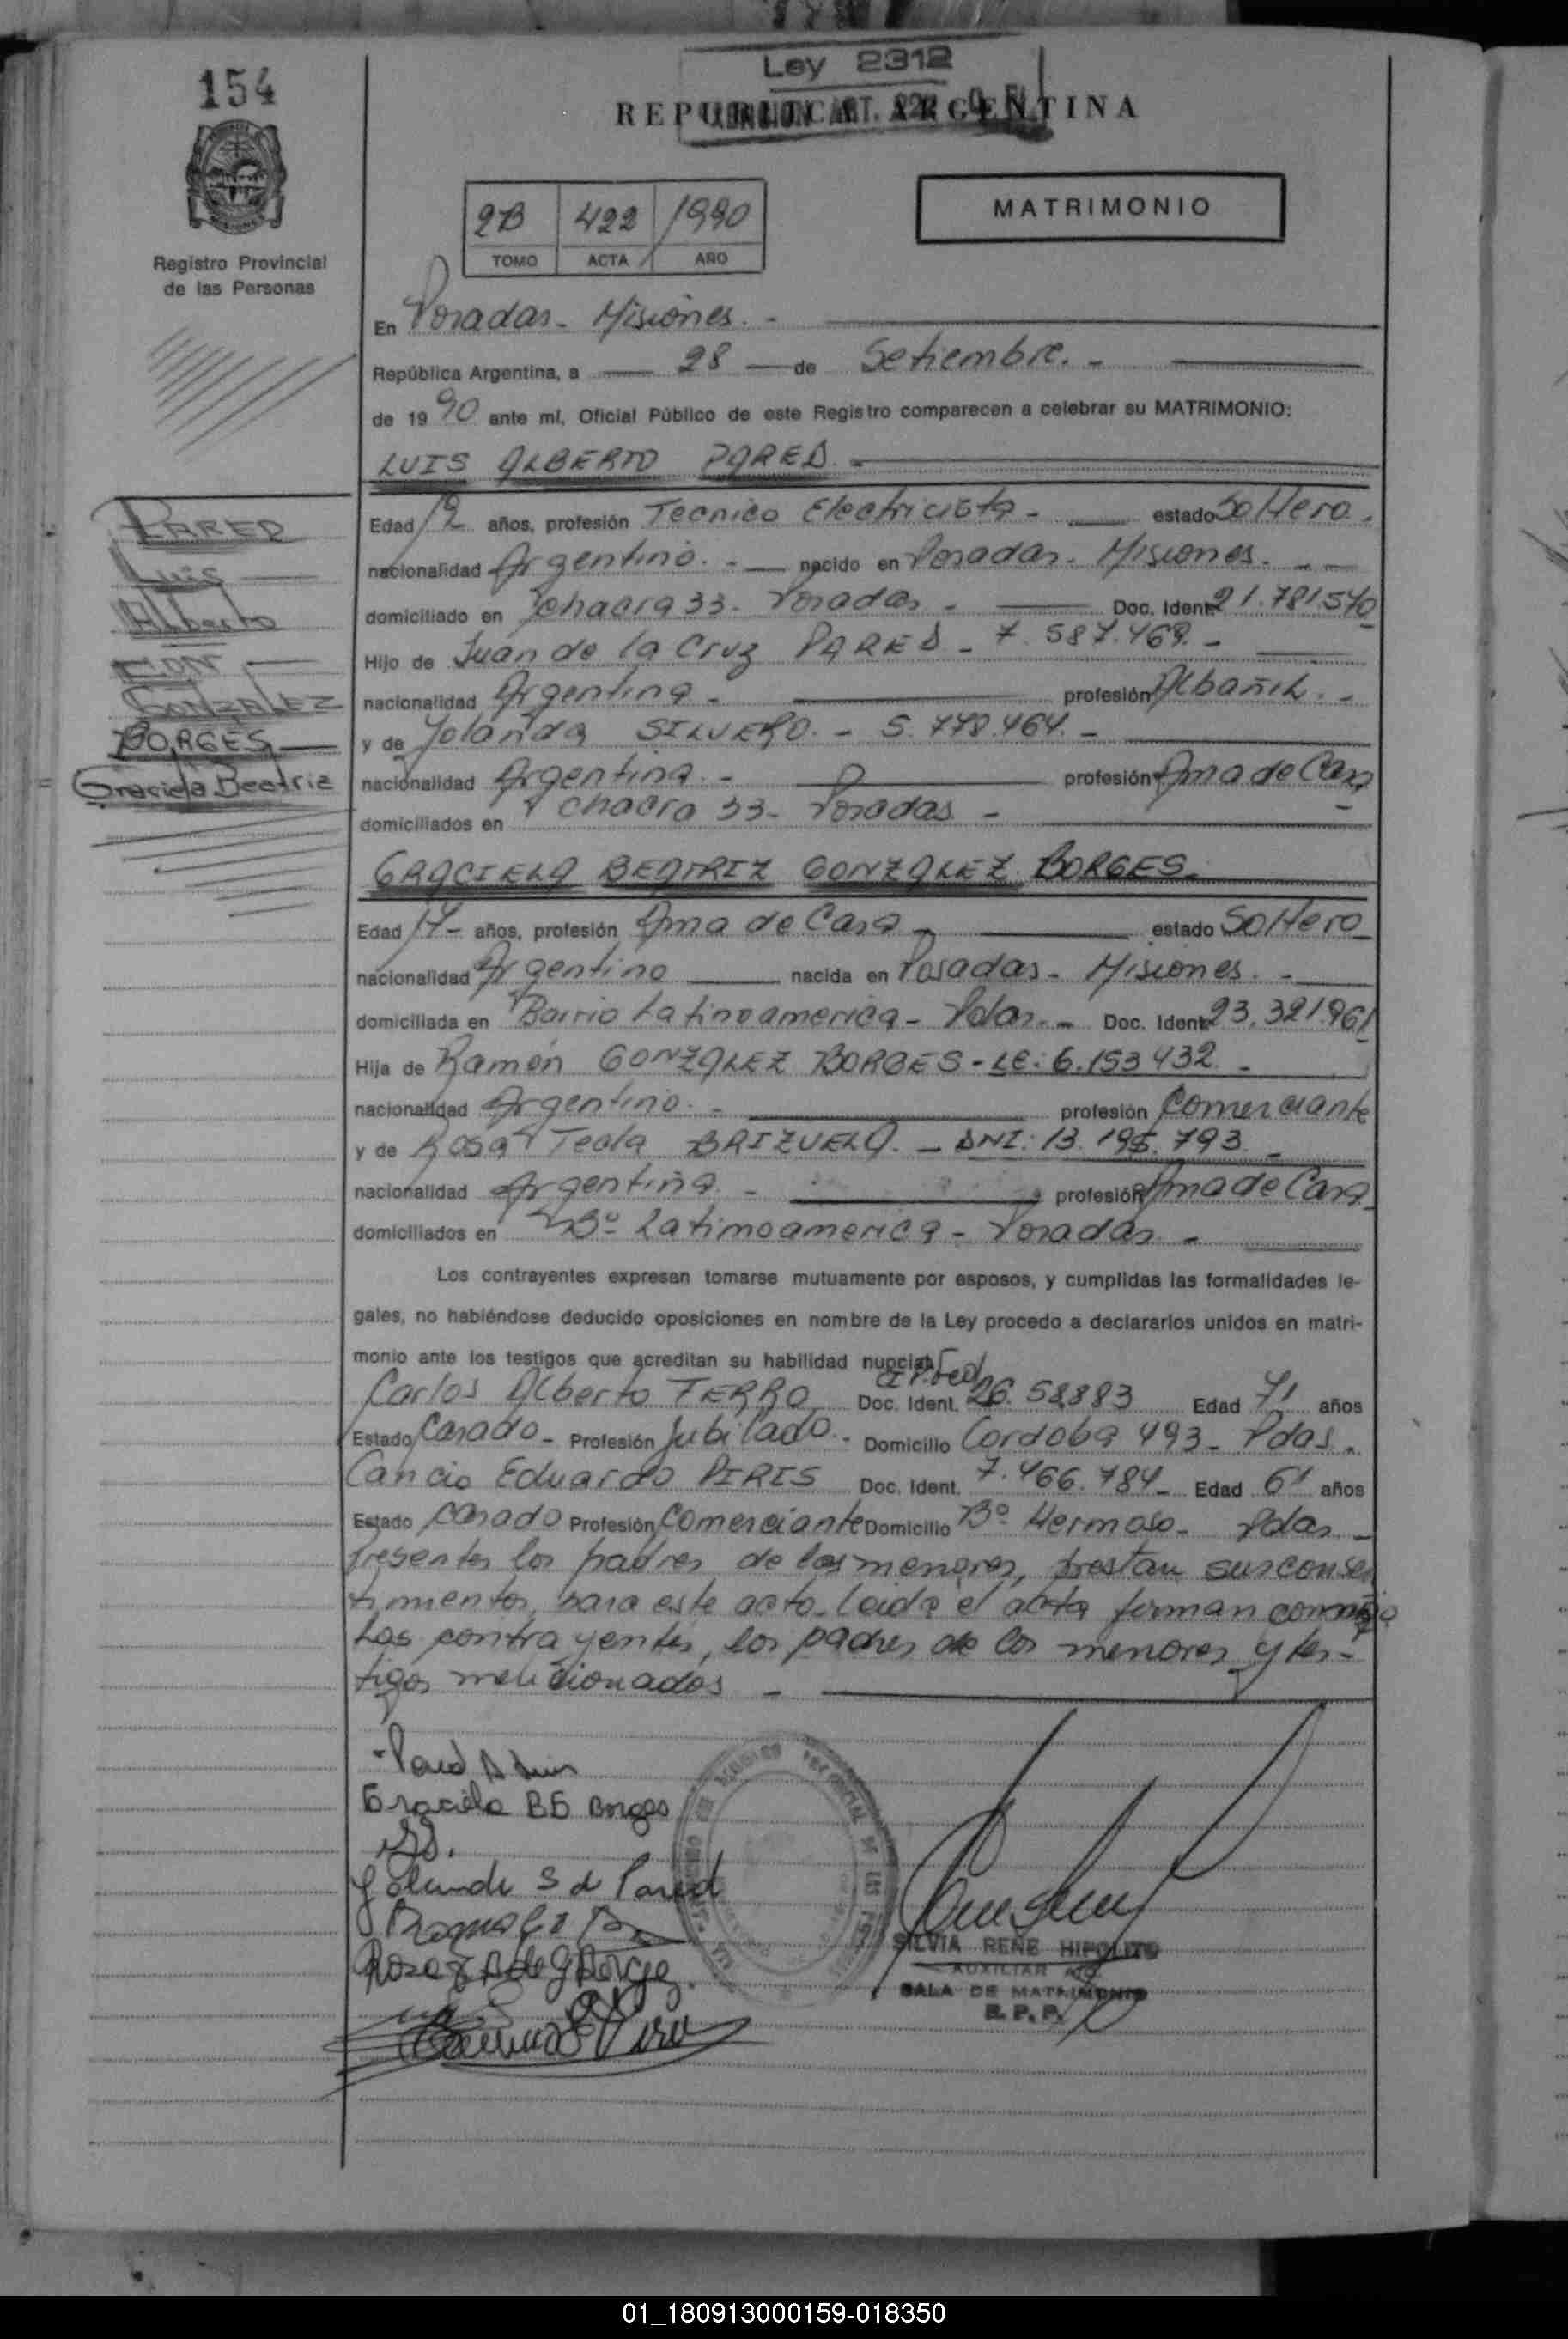 154
Ley 2312
REPUBLICA ARGENTINA
Registro Provincial
de las Personas
2B 422 1990
TOMO ACTA AÑO
MATRIMONIO
En Posadas - Misiones. -
República Argentina, a 28 de Setiembre. -
de 1990 ante mí, Oficial Público de este Registro comparecen a celebrar su MATRIMONIO:
LUIS ALBERTO PARED. -
PARED
Luis
Alberto
CON
GONZALEZ
BORGES
Graciela Beatriz
Edad 19 años, profesión Tecnico Electricista - estado Soltero.
nacionalidad Argentino. - nacido en Posadas - Misiones. -
domiciliado en chacra 33 - Posadas - Doc. Ident. 21.781.540
Hijo de Juan de la Cruz PARED - 7.587.469. -
nacionalidad Argentina - profesión Albañil. -
y de Yolanda SILVERO. - 5.778.464. -
nacionalidad Argentina. - profesión Ama de Casa
domiciliados en chacra 33 - Posadas -
GRACIELA BEATRIZ GONZALEZ BORGES.
Edad 17 - años, profesión Ama de Casa - estado Soltero
nacionalidad Argentino nacida en Posadas - Misiones. -
domiciliada en Barrio Latinoamerica - Pdas. - Doc. Ident. 23.321.961
Hija de Ramón GONZALEZ BORGES - LE: 6.153 432. -
nacionalidad Argentino. - profesión Comerciante
y de Rosa Tecla BRIZUELA. - DNI: 13.195.793. -
nacionalidad Argentina. - profesión Ama de Casa
domiciliados en Bº Latinoamerica - Posadas -
Los contrayentes expresan tomarse mutuamente por esposos, y cumplidas las formalidades le-
gales, no habiéndose deducido oposiciones en nombre de la Ley procedo a declararlos unidos en matri-
monio ante los testigos que acreditan su habilidad nupcial:
Carlos Alberto FERRO Doc. Ident. 26.58883 Edad 71 años
Estado Casado - Profesión Jubilado - Domicilio Cordoba 493 - Pdas.
Cancio Eduardo PIRIS Doc. Ident. 7.466.784 - Edad 61 años
Estado Casado Profesión Comerciante Domicilio Bº Hermoso - Pdas -
Presentes los padres de los menores, prestan sus consen
timientos, para este acto. Leida el acta firman conmigo
Los contrayentes, los padres de los menores y tes-
tigos mencionados -
Graciela BG Borges
Yolanda S de Pared
SILVIA RENE HIPOLITO
AUXILIAR
SALA DE MATRIMONIO
R.P.P.
01_180913000159-018350